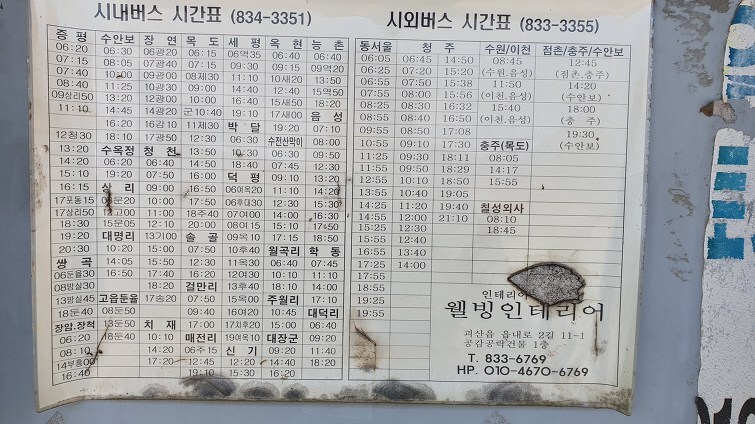 시내버스 시간표 (834-3351)
증평 수안보 장연 목도 세평 옥현 능촌
06:20 06:30 06광20 06:15 06역35 06:40 06:40
07:15 08:05 07광40 07:15 09:30 09:15 09역20
08:05 10:00 09광00 08제30 11:10 10새20 13:50
09상리50 13:20 12광00 10:00 12:40 15역50
11:10 14:45 14광20 군10:40 19:10 17새50 18:20
16:20 16감10 11제30 박달 19:20 음성
12청30 18:10 17광50 12:30 06:30 수전산막이 07:10
13:20 수옥정 청천 13:50 10:30 06:30 08:00
15:10 06:50 14:50 18:40 07:45 09:50
16:15 19:20 07:50 16:00 덕평 09:10 12:30
상리 09:00 16:50 06여20 11:10 13:20
17포동15 10:20 17:50 06후대30 12:30 14:20
17상리50 11:00 18주40 07여00 14:00 15:30
18:30 15문05 12:10 20:00 08여00 15:10 16:30
19:20 대명리 13기00 솔골 09옥10 17:15 17:50
20:30 10:20 15:00 07:50 10후40 월곡리 18:50
쌍곡 14:05 15:50 12:50 11옥30 06:40 학동
06둔율30 16:50 17:40 16:20 12여30 11:10 07:45
08방실30 18:20 걸만리 13후40 14:10 10:10
13방실45 고읍둔율 17송20 07:50 15옥00 주월리 18:10
18둔40 08둔50 09:40 16여20 10:45 대덕리
장암,장척 13둔50 치재 17:00 17치후20 15:00 06:40
06:20 18둔40 10:10 매전리 19여옥10 대장군 09:20
08:10 14:20 06주15 신기 09:20 11:40
14부흥00 17:20 12:45 12:20 14:40 18:20
16:40 19:10 15:30 16:20
시외버스 시간표 (833-3355)
동서울 청주 수원/이천 점촌/충주/수안보
06:05 06:45 14:50 08:45 12:45
06:55 07:20 15:20 (수원,음성) (점촌,충주)
07:25 07:50 15:38 11:50 14:20
07:55 08:00 15:56 (이천,음성) (수안보)
08:25 08:30 16:32 15:40 18:00
08:55 08:40 16:50 (이천,음성) (충 주)
09:55 08:50 17:08 19:30
10:55 09:10 17:30 충주(목도) (수안보)
11:25 09:30 18:11 08:05
12:25 09:50 18:29 14:17
12:55 10:50 18:50 15:55
13:55 10:40 19:05
14:25 11:20 19:40 칠성외사
14:55 12:00 21:10 08:10
15:25 12:30 18:45
15:55 12:40
16:55 13:20
17:25 14:00
17:55
18:55
19:25
19:55
인테리어
웰빙인테리어
괴산읍 읍내로 2길 11-1
공감공락건물 1층
T. 833-6769
HP. 010-4670-6769